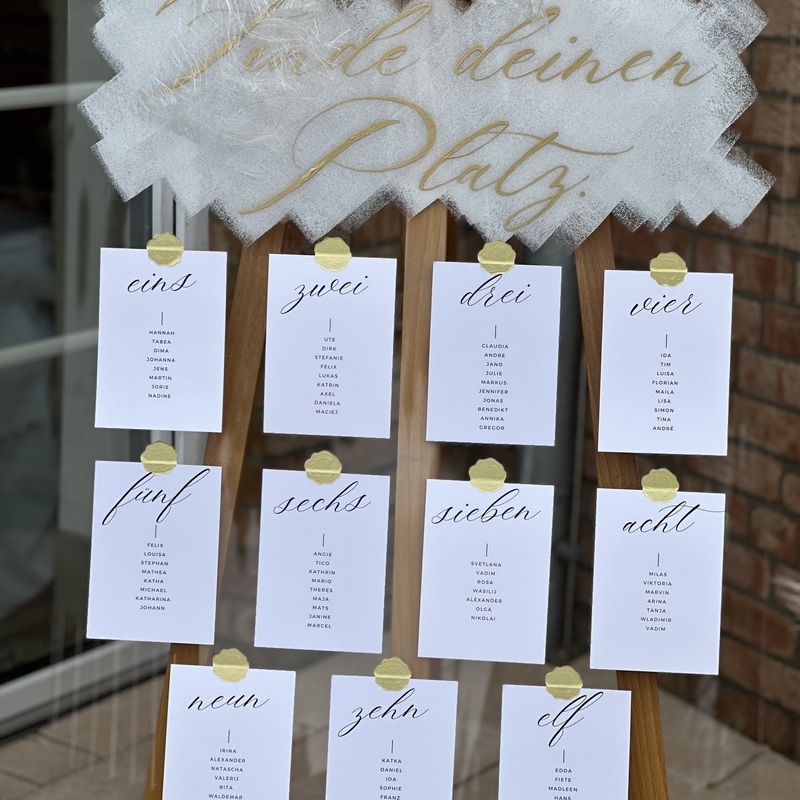 Finde deinen
Platz.
eins
HANNAH
TABEA
DIMA
JOHANNA
JENS
MARTIN
JORIS
NADINE
zwei
UTE
DIRK
STEFANIE
FELIX
LUKAS
KATRIN
AXEL
DANIELA
MACIEJ
drei
CLAUDIA
ANDRE
JANO
JULIE
MARKUS
JENNIFER
JONAS
BENEDIKT
ANNIKA
GREGOR
vier
IDA
TIM
LUISA
FLORIAN
MAILA
LISA
SIMON
TINA
ANDRÉ
fünf
FELIX
LOUISA
STEPHAN
MATHEA
KATHA
MICHAEL
KATHARINA
JOHANN
sechs
ANGIE
TICO
KATHRIN
MARIO
THERES
MAJA
MATS
JANINE
MARCEL
sieben
SVETLANA
VADIM
ROSA
WASILIJ
ALEXANDER
OLGA
NIKOLAI
acht
MILAS
VIKTORIA
MARVIN
ARINA
TANJA
WLADIMIR
VADIM
neun
IRINA
ALEXANDER
NATASCHA
VALERIJ
RITA
WALDEMAR
zehn
KATKA
DANIEL
IDA
SOPHIE
FRANZ
elf
EDDA
FIETE
MADLEEN
HANS